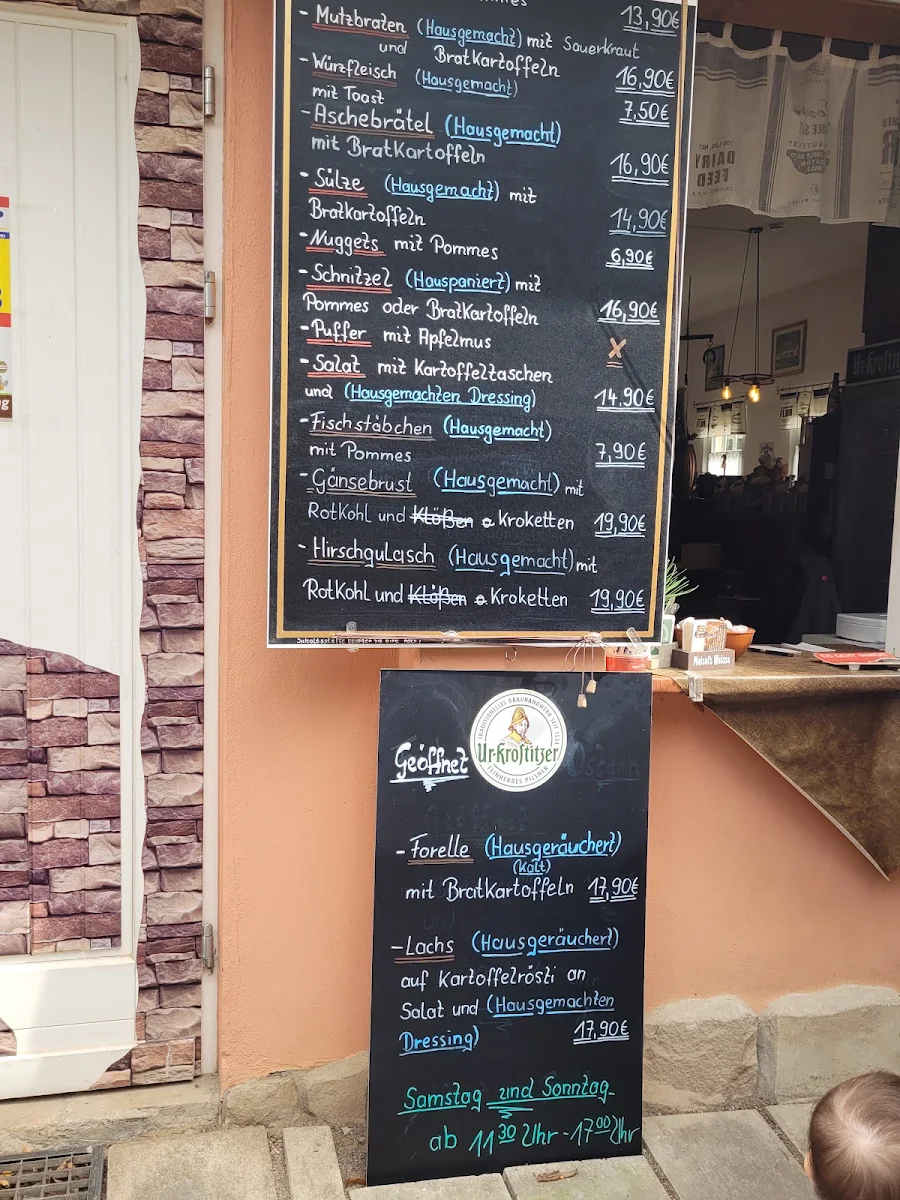 13,90€
- Mutzbraten (Hausgemacht) mit Sauerkraut
und BratKartoffeln 16,90€
- Würzfleisch (Hausgemacht)
mit Toast 7,50€
- Aschebrätel (Hausgemacht)
mit BratKartoffeln 16,90€
- Sülze (Hausgemacht) mit
Bratkartoffeln 14,90€
- Nuggets mit Pommes 6,90€
- Schnitzel (Hauspaniert) mit
Pommes oder BratKartoffeln 16,90€
- Puffer mit Apfelmus x
- Salat mit Kartoffeltaschen
und (Hausgemachten Dressing) 14.90€
- Fischstäbchen (Hausgemacht)
mit Pommes 7,90€
- Gänsebrust (Hausgemacht) mit
RotKohl und Klößen o. Kroketten 19,90€
- Hirschgulasch (Hausgemacht) mit
RotKohl und Klößen o. Kroketten 19,90€
DAIRY
FEED
Ur-Krostitzer
Meisel's Weisse
Geöffnet
TRADITIONELLES BRAUHANDWERK SEIT 1534
Ur-Krostitzer
FEINHERBES PILSNER
- Forelle (Hausgeräuchert)
(Kalt)
mit BratKartoffeln 17,90€
- Lachs (Hausgeräuchert)
auf Kartoffelrösti an
Salat und (Hausgemachten
Dressing) 17,90€
Samstag und Sonntag
ab 11 30 Uhr - 17 00 Uhr